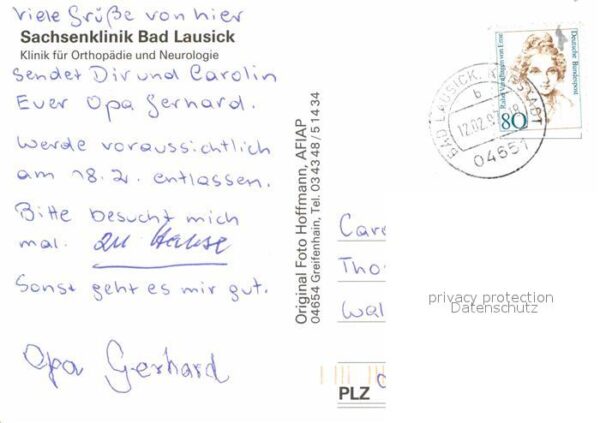 Viele Grüße von hier
Sachsenklinik Bad Lausick
Klinik für Orthopädie und Neurologie
sendet Dir und Carolin
Euer Opa Gerhard.
Werde voraussichtlich
am 18.2. entlassen.
Bitte besucht mich
mal. zu Hause
Sonst geht es mir gut.
Opa Gerhard
Original Foto Hoffmann, AFIAP
04654 Greifenhain, Tel. 03 43 48 / 5 14 34
Deutsche Bundespost
Rahel Varnhagen von Ense
80
BAD LAUSICK, KURSTADT
b
04651
Caro
Tho
Wal
privacy protection
Datenschutz
PLZ